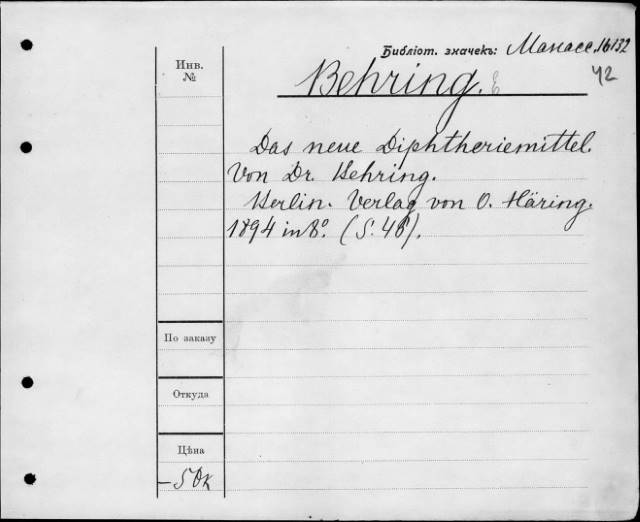 Библіот. значекъ: Манасс. 16132
42
Инв.
№
Behring. E
Das neue Diphtheriemittel.
Von Dr. Behring.
Berlin. Verlag von O. Häring.
1894 in 8°. (S. 48).
По заказу
Откуда
Цѣна
– 50к